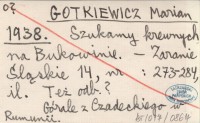 GOTKIEWICZ Marian
1938. Szukamy krewnych
na Bukowinie. - Zaranie
Śląskie 14, nr : 273-284,
il. Też odb.?
Górale z Czadeckiego w
Rumunii.